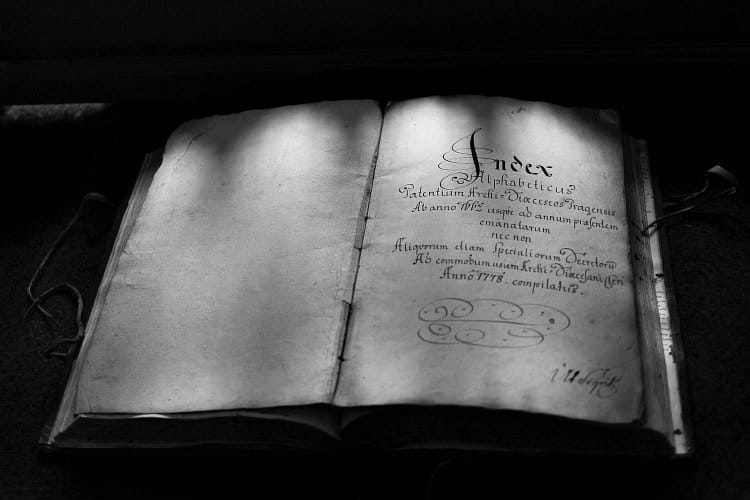 Index
Alphabeticus
Patentium Archi-Dioeceseos Pragensis
Ab anno usque ad annum præsentem
emanatarum
nec non
Aliquorum etiam Specialiorum Decretorũ
Ab commodum usum Archi-Dioecesani Cleri
Anno 1778. compilatus.